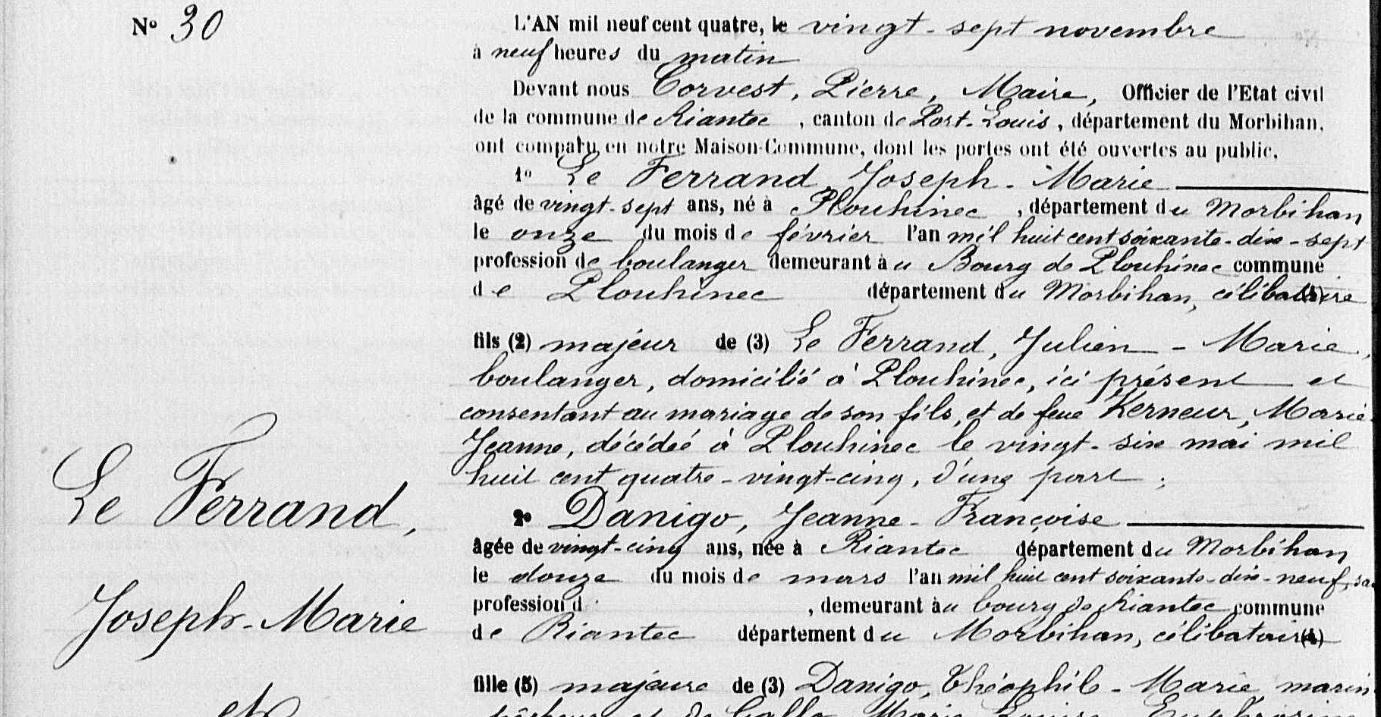 N° 30
L'AN mil neuf cent quatre, le vingt-sept novembre
à neuf heures du matin
Devant nous Corvest, Pierre, Maire, Officier de l'Etat civil
de la commune de Riantec, canton de Port-Louis, département du Morbihan,
ont comparu en notre Maison-Commune, dont les portes ont été ouvertes au public.
1° Le Ferrand Joseph-Marie
âgé de vingt-sept ans, né à Plouhinec, département du Morbihan
le onze du mois de février l'an mil huit cent soixante-dix-sept
profession de boulanger demeurant au Bourg de Plouhinec commune
de Plouhinec département du Morbihan, célibataire
fils (2) majeur de (3) Le Ferrand, Julien-Marie,
boulanger, domicilié à Plouhinec, ici présent et
consentant au mariage de son fils, et de feue Kerneur, Marie
Jeanne, décédée à Plouhinec le vingt-six mai mil
huit cent quatre-vingt-cinq, d'une part;
Le Ferrand,
2° Danigo, Jeanne-Françoise
âgée de vingt-cinq ans, née à Riantec département du Morbihan
le douze du mois de mars l'an mil huit cent soixante-dix-neuf, sa
profession d , demeurant au bourg de Riantec commune
Joseph-Marie
de Riantec département du Morbihan, célibataire (4)
fille (5) majeure de (3) Danigo Théophile-Marie, marin
et
pêcheur et de Gallo Marie Louise Euphrosine